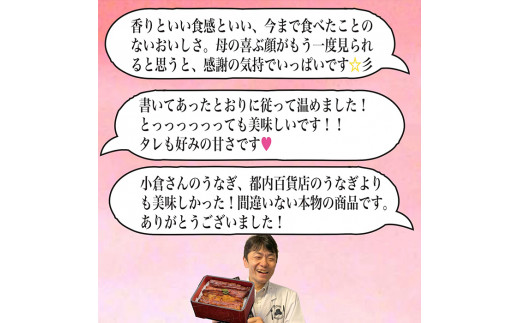 香りといい食感といい、今まで食べたことの
ないおいしさ。母の喜ぶ顔がもう一度見られ
ると思うと、感謝の気持でいっぱいです☆彡
書いてあったとおりに従って温めました！
とっっっっっっても美味しいです！！
タレも好みの甘さです♥
小倉さんのうなぎ、都内百貨店のうなぎより
も美味しかった！間違いない本物の商品です。
ありがとうございました！